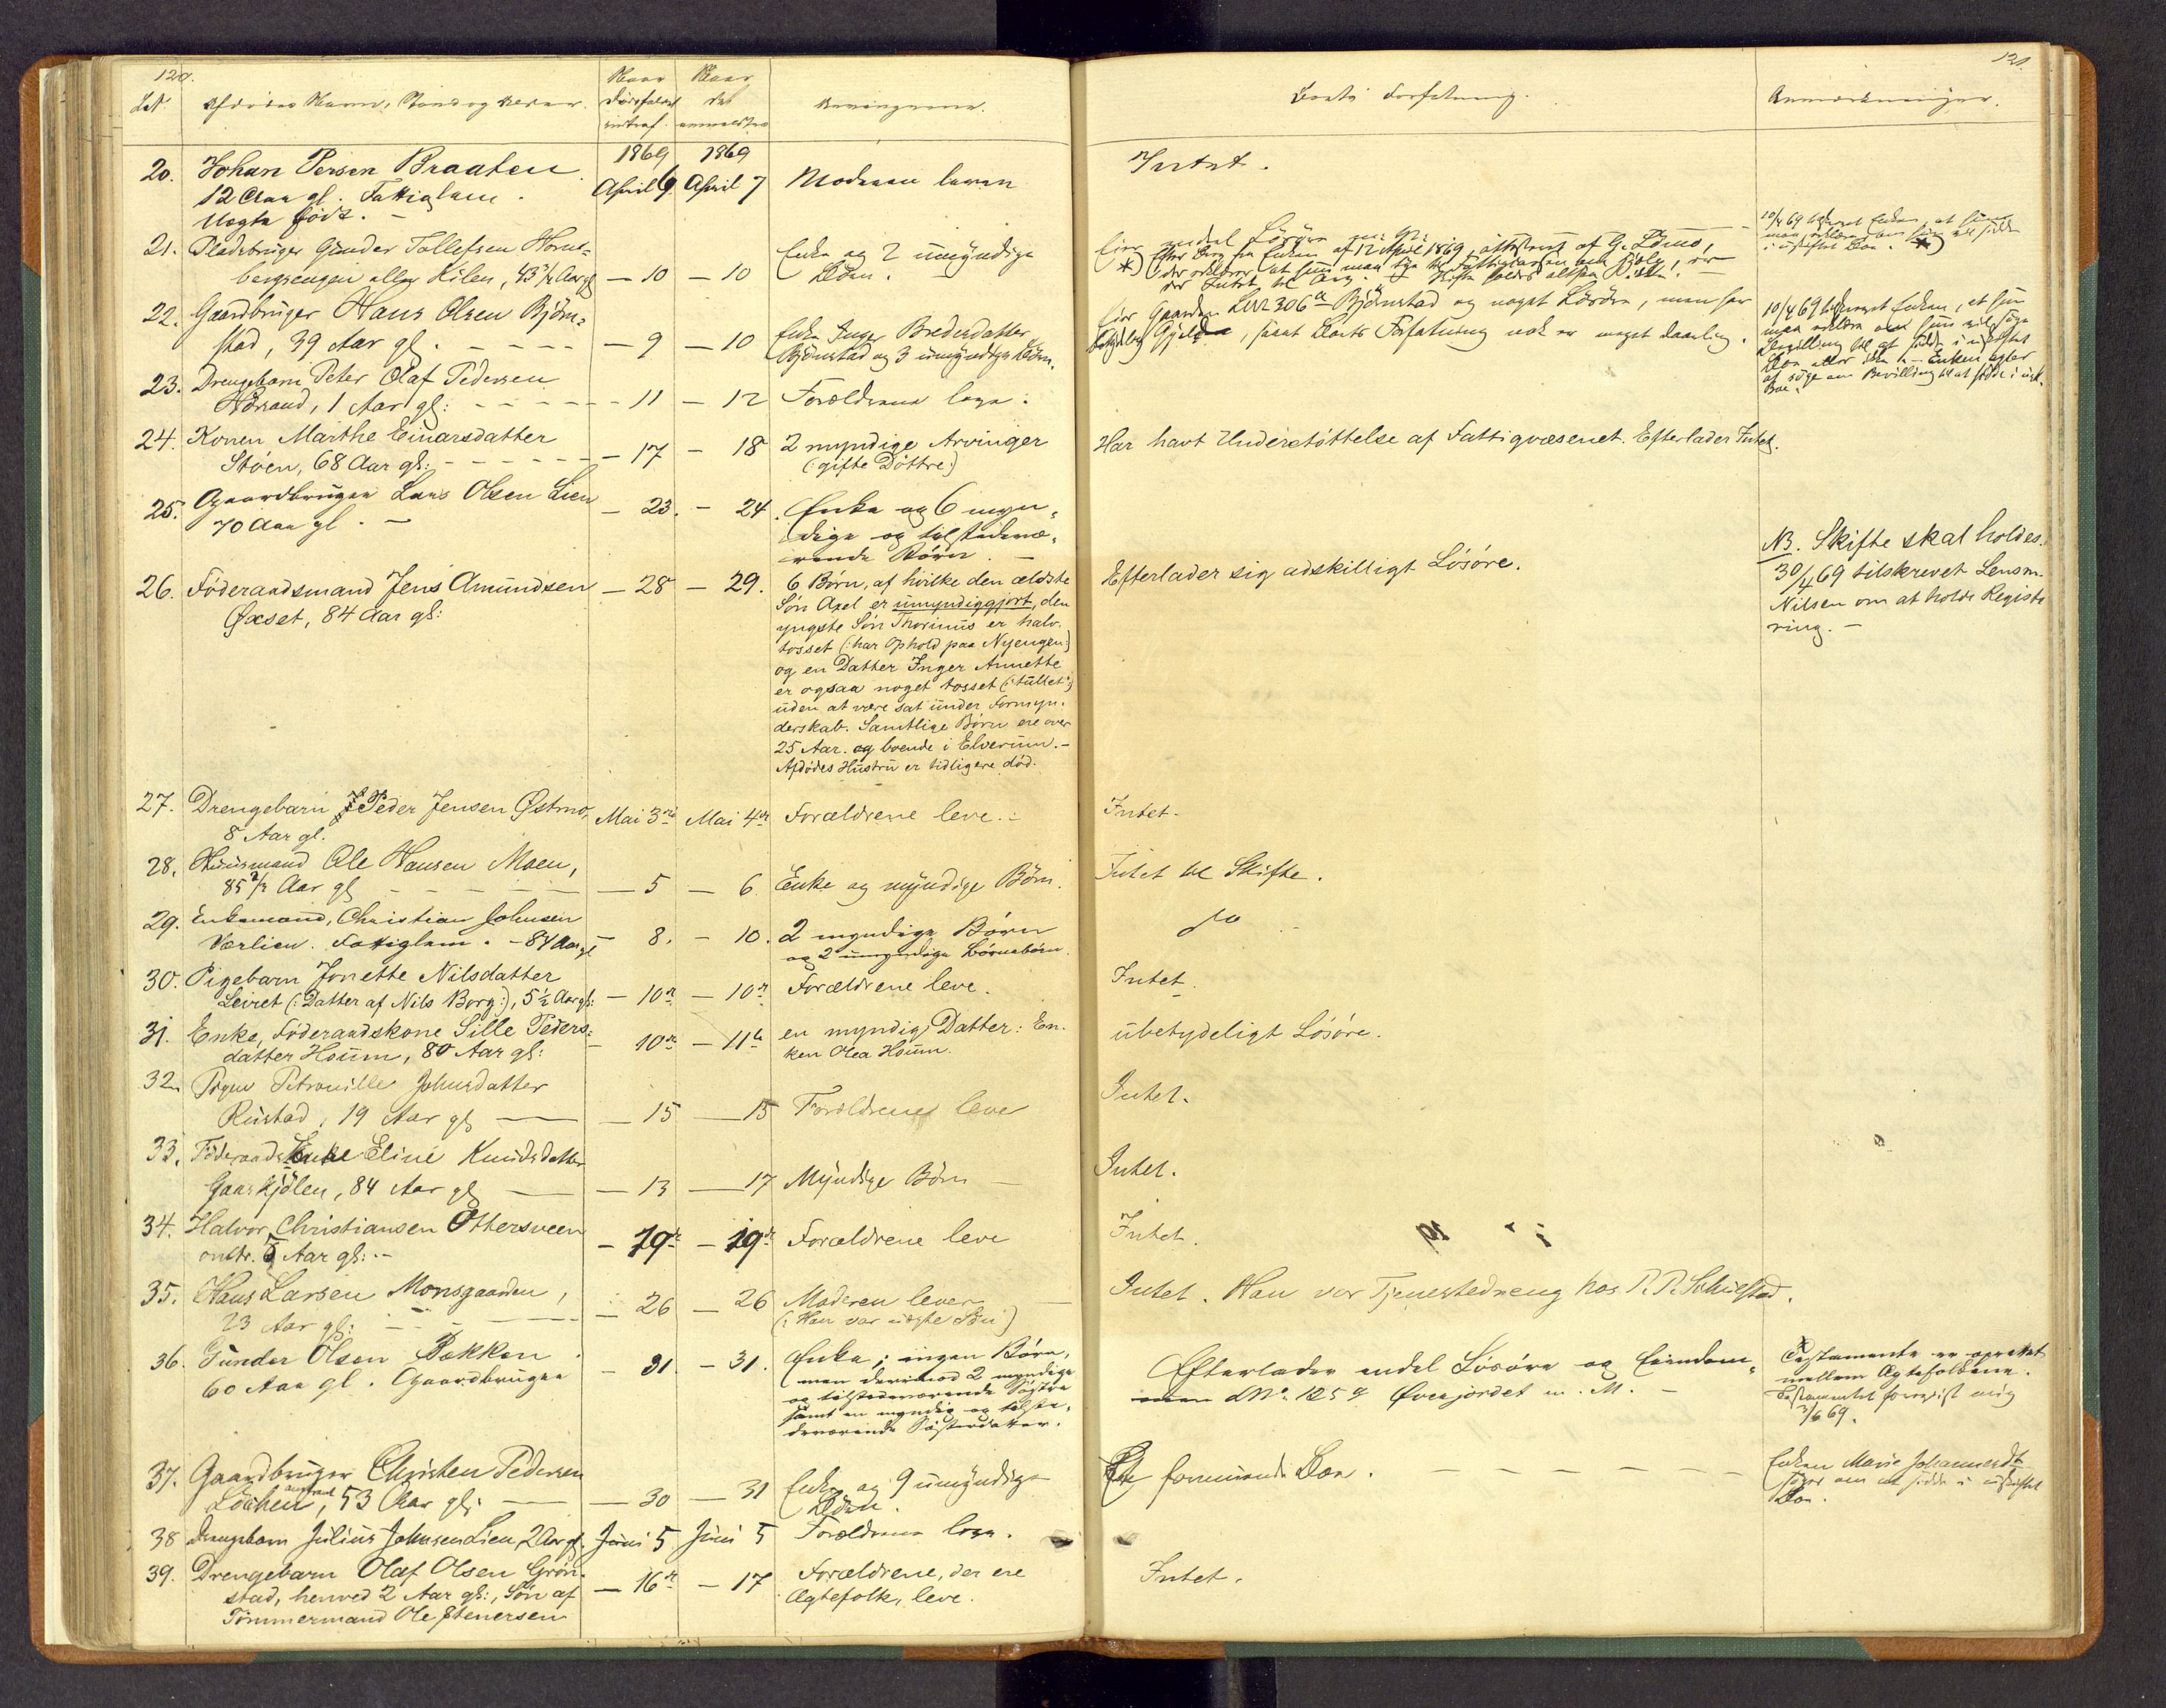 120.
LNo
Afdødes Navn, Stand og
Naar
Dødsfaldet
indtraf.
Naar
det
anmeldtes
Arvingerne.
1869
1869
20. Johan Persen Braaten
12 Aar gl. Fattiglem.
Uægte født. -
April 6
April 7
Moderen lever
21. Pladsbruger Gunder Tollefsen Horne-
bergsengen eller Kilen, 43 ½ Aar gl
- 10
- 10
Enke og 2 umyndige
Børn.
22. Gaardbruger Hans Olsen Bjørn-
stad, 39 Aar gl.
- 9
- 10
Enke Inger Bredesdatter
Bjørnstad og 3 umyndige Børn.
23. Drengebarn Peter Olaf Pedersen
, 1 Aar gl:
- 11
- 12
Forældrene leve.
24. Konen Marthe Einarsdatter
Støen, 68 Aar gl:
- 17
- 18
2 myndige Arvinger
(: gifte Døttre:)
25. Gaardbruger Lars Olsen Lien
70 Aar gl. -
- 23.
- 24.
Enke og 6 myn-
dige og tilstedevæ-
rende Børn. -
26. Føderaadsmand Jens Amundsen
Øxset, 84 Aar gl:
- 28
- 29.
6 Børn, af hvilke den ældste
Søn Axel er umyndiggjort, den
yngste Søn Thorinus er halv-
tosset (: har Ophold paa Nyengen:)
og en Datter Inger Annette
er ogsaa noget tosset (: tullet:)
uden at være sat under Formyn-
derskab. Samtlige Børn ere over
25 Aar. og boende i Elverum. -
Afdødes Hustru er tidligere død.
27. Drengebarn Peder Jensen Østmo,
8 Aar gl.
Mai 3die
Mai 4de
Forældrene leve. -
28. Huusmand Ole Hansen Moen,
85 ½ Aar gl
- 5
- 6.
Enke og myndige Børn.
29. Enkemand, Christian Johnsen
Værlien. Fattiglem. - 84 Aar gl
- 8.
- 10.
2 myndige Børn
og 2 umyndige Børnebørn.
30. Pigebarn Jonette Nilsdatter
Leiret (: Datter af Nils Borg:), 5 ½ Aar gl:
- 10de
- 10de
Forældrene leve.
31. Enke, Føderaadskone Sille Peders-
datter Houm, 80 Aar gl:
- 10de
- 11te
en myndig Datter: En-
ken Olea Houm.
32. Pigen Petronille Johnsdatter
Rustad, 19 Aar gl
- 15
- 15
Forældrene leve
33. Føderaads Enke Eline Knudsdatter
Gaaskjølen, 84 Aar gl
- 13
- 17
Myndige Børn
34. Halvor Christiansen Ottersveen
omtr. 5 Aar gl: -
- 19de
- 19de
Forældrene leve
35. Hans Larsen Monsgaarden,
23 Aar gl:
- 26
- 26
Moderen lever
(: Han var uægte Søn)
36. Gunder Olsen Bakken
60 Aar gl. Gaardbruger
- 31.
- 31.
Enke; ingen Børn,
men derimod 2 myndige
og tilstedeværende Søstre
samt en myndig og tilste-
deværende Søsterdatter.
37. Gaardbruger Christen Pedersen
Løchen, 53 Aar gl:
- 30
- 31
Enke og 9 umyndige
Børn.
38 Drengebarn Julius Johnsen Lien, 2 Aar gl.
Juni 5.
Juni 5
Forældrene leve.
39. Drengebarn Olaf Olsen Grøn-
stad, henved 2 Aar gl:, Søn af
Tømmermand Ole Stenersen
- 16de
- 17
Forældrene, der ere
Ægtefolk, leve.
121.
Boets Forfatning.
Anmærkninger.
Intet.
Eier endel Løsøre
*) Efter Brev fra Enken af 12 April 1869, attesteret af G.
der erklærer at hun maa
Intet
10/4 69 tilskrevet Enken, at hun
maa erklære om hun vil sidde
i uskiftet Boe. *)
Eier Gaarden LNr 306a Bjørnstad og noget Løsøre, men har
betydelig Gjeld, saa Boets Forfatning nok er meget daarlig.
10/4 69 tilskrevet Enken, at hun
maa erklære om hun vil søge
Bevilling til at sidde i uskiftet
Boe eller ikke. - Enken agter
at søge om Bevilling til at sidde i usk.
Boe.
Har havt Understøttelse af Fattigvæsenet. Efterlader Intet.
Efterlader sig adskilligt Løsøre.
NB. Skifte skal holdes.
30/4 69 tilskrevet Lensm.
Nilsen om at holde Registe
ring. -
Intet.
Intet til Skifte.
do
Intet.
ubetydeligt Løsøre.
Intet.
Intet.
Intet.
Intet. Han var Tjenestedreng hos P. P.
Efterlader endel Løsøre og Eiendom-
men LNo. 125 Øvergjordet m. M. -
Testamente er oprettet
mellem Ægtefolkene.
Testamentet forevist mig
3/6 69.
formuende Boe.
Enken Marie Johannesdt
søger om at sidde i uskiftet
Boe.
Intet.